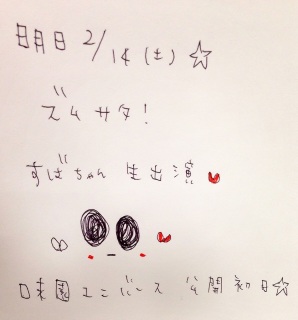 明日 2/14(土)☆
ズムサタ!
すばちゃん 生出演
味園ユニバース 公開初日☆